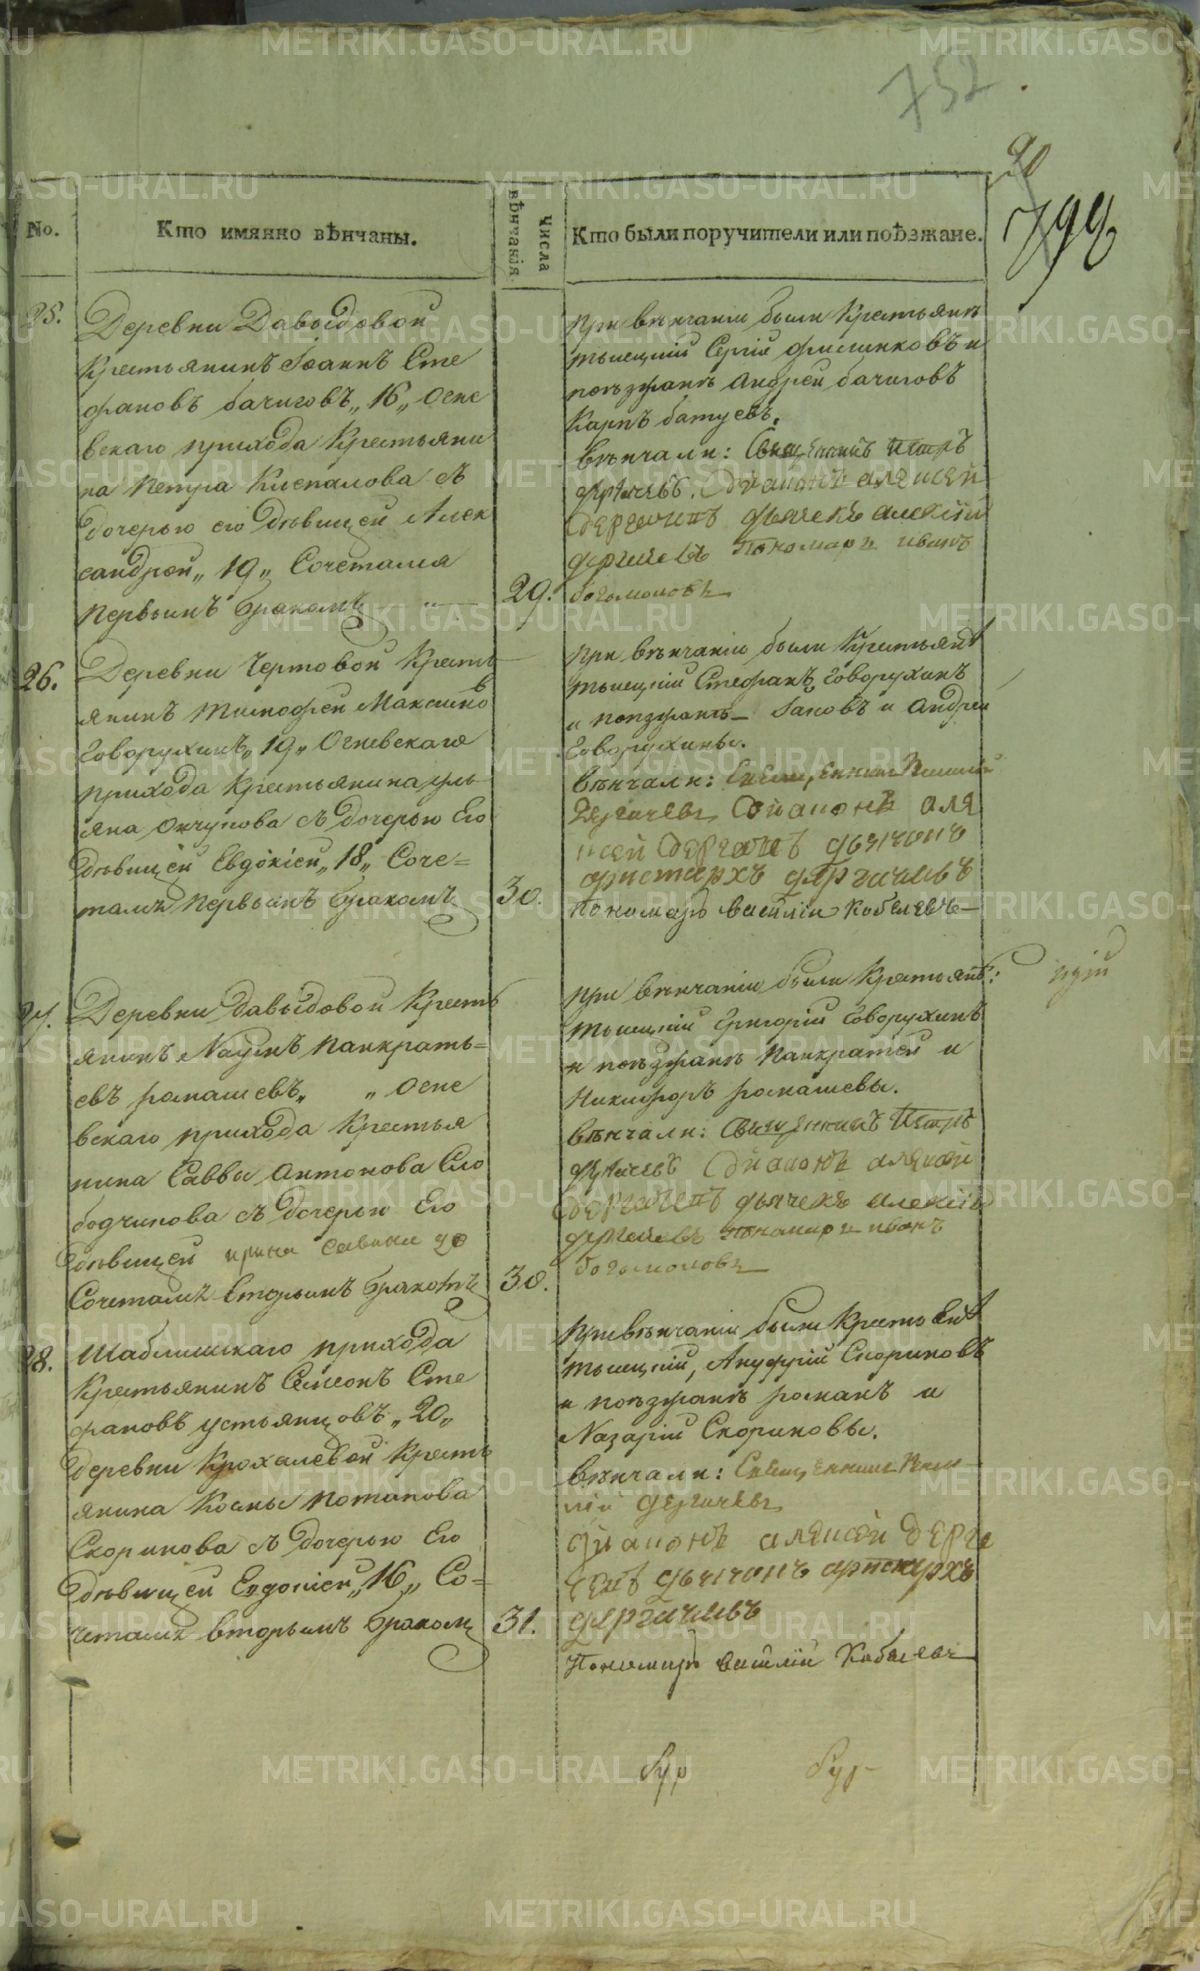 752
90
799
No.
Кто имянно вѣнчаны.
Числа вѣнчанія
Кто были поручители или поѣзжане.
25.
Деревни Давыдовой
Крестьянинъ Іоаннъ Сте
фановъ бачиговъ „16„ Огне
вскаго прихода Крестьяни
на Петра Киспалова съ
дочерью его дѣвицей Алек
сандрой „19„ Сочетался
первымъ бракомъ
29.
При вѣнчаніи были Крестьянѣ
тысецкій Сергій филинковъ и
поѣзжанѣ Андрей бачиговъ
Карпъ батуевъ.
вѣнчали: Священникъ Петръ
дергачевъ. Діаконъ алексей
дергачевъ дьячекъ алексій
дергачевъ пономарь иванъ
богомоловъ
26.
Деревни Чертовой Кресть
янинъ Тимофей Максимовъ
Говорухинъ „19„ Огневскаго
прихода Крестьянина уль
яна Окчунова съ дочерью Его
дѣвицей Евдокіей „18„ Соче=
тался первымъ бракомъ
30.
При вѣнчаніи были Крестьянѣ
тысецкій Стефанъ Говорухинъ
и поѣзжанѣ Іаковъ и Андрей
Говорухины.
вѣнчали: Священникъ Василій
Дергачевъ Діаконъ але
ксей дергачевъ дьячокъ
аристархъ дергачевъ
пономарь василій Кобелевъ
27.
Деревни Давыдовой Кресть
янинъ Наумъ Панкрать=
евъ ромашевъ „ „ Огне
вскаго прихода Крестья
нина Саввы Антонова Сло
бодчикова съ дочерью Его
дѣвицей ирина савина
Сочетался вторымъ бракомъ
30.
При вѣнчаніи были Крестьянѣ:
тысецкій Григорій Говорухинъ
и поѣзжанѣ Панкратей и
Никифоръ ромашевы.
вѣнчали: Священникъ Петръ
дергачевъ Діаконъ алексей
дергачевъ дьячекъ алексій
дергачевъ пономарь иванъ
богомоловъ
28.
Шаблишскаго прихода
Крестьянинъ Семеонъ Сте
фановъ устьянцовъ „20„
деревни Крохалевой Кресть
янина Космы Потапова
Скоринова съ дочерью Его
дѣвицей Евдокіей „16„ Со=
четался вторымъ бракомъ
31.
При вѣнчаніи были Крестьянѣ
тысецкій, Ануфрій Скориновъ
и поѣзжанѣ романъ и
Назарій Скориновы.
вѣнчали: Священникъ Васи
лій дергачевъ
діаконъ алексей дерга
чевъ дьячокъ аристархъ
дергачевъ
Пономарь василій Кобелевъ